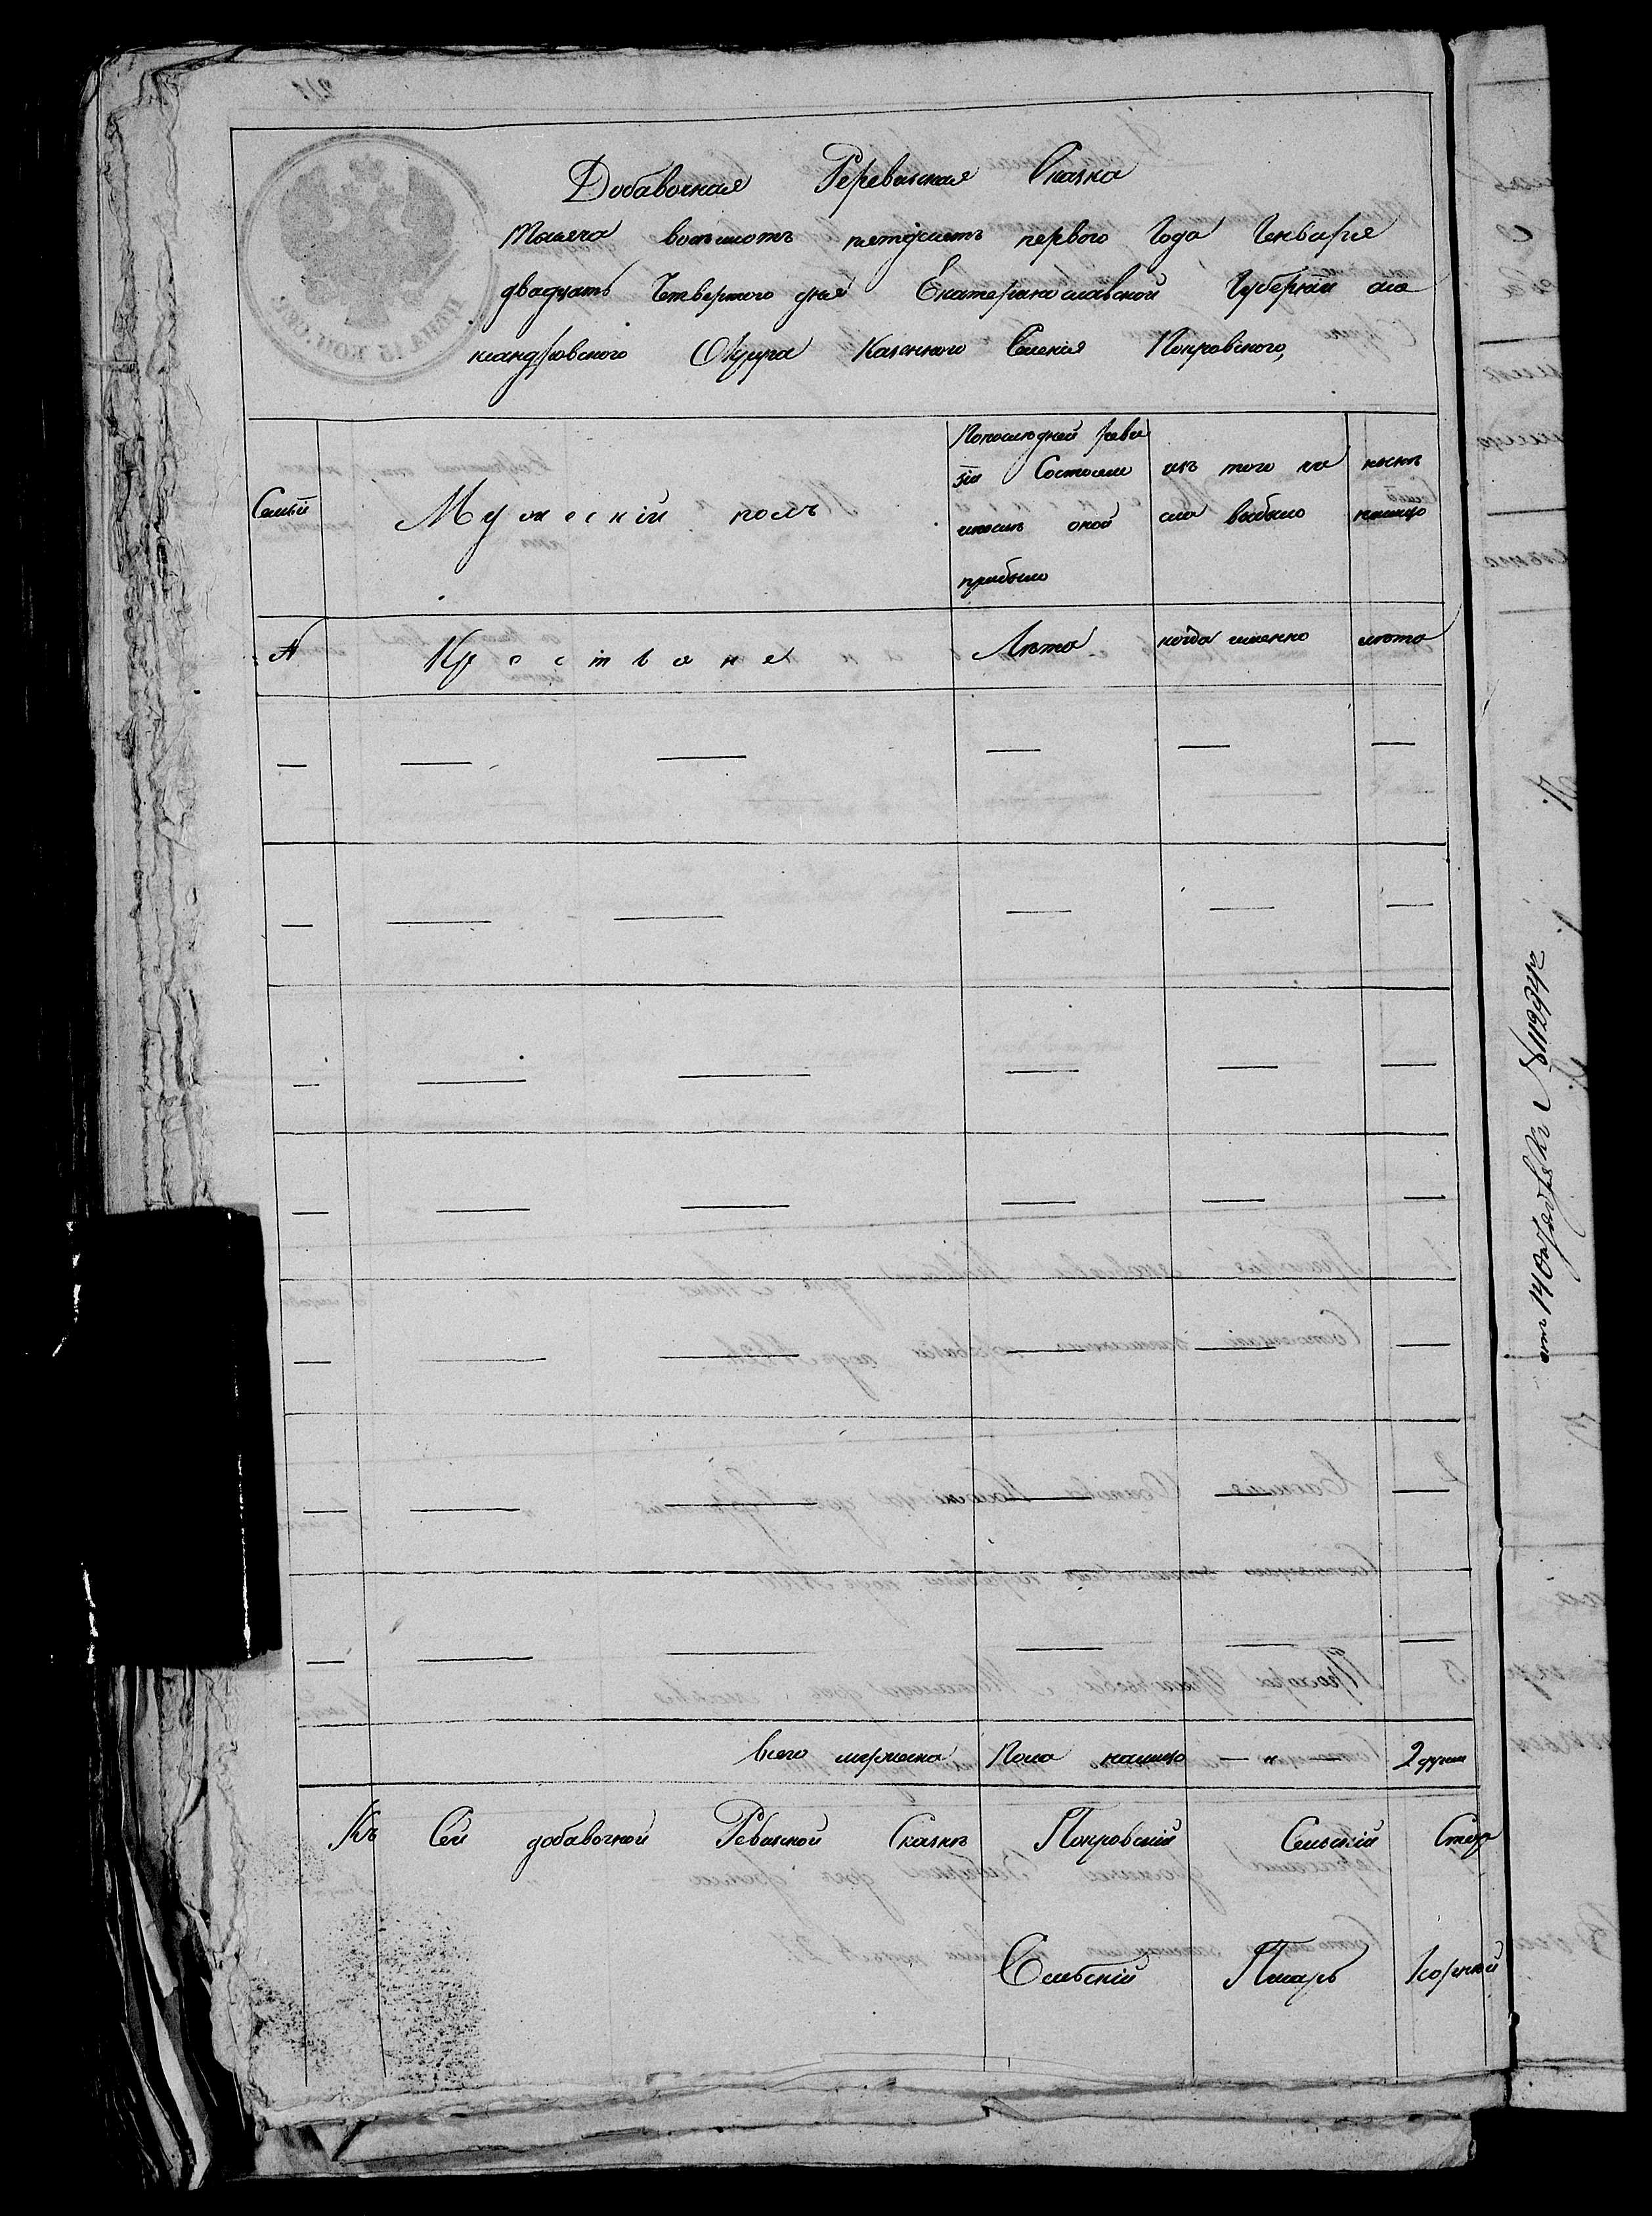 Добавочная Ревизская Сказка
Тысяча восемсотъ петдесятъ первого Года Генваря
двадцать Четвертого дня Екатеринославской Губернiи Але
ксандровского Округа Казенного Селенiя Покровского,
Семьи
Мужескiй полъ
Попоследней реви
зiи Состояло
ипосле оной
прибыло
изъ того чи
сла выбыло
ныне
налицо
№
Крестьяне
Лета
когда именно
лета
Всего мужеска Пола налицо — „ — 2 души
Къ Сей добавочной Ревизкой Сказке Покровскiй Сельскiй Стар
Сельскiй Писарь
ЦЕНА 15 КОП. СЕР.